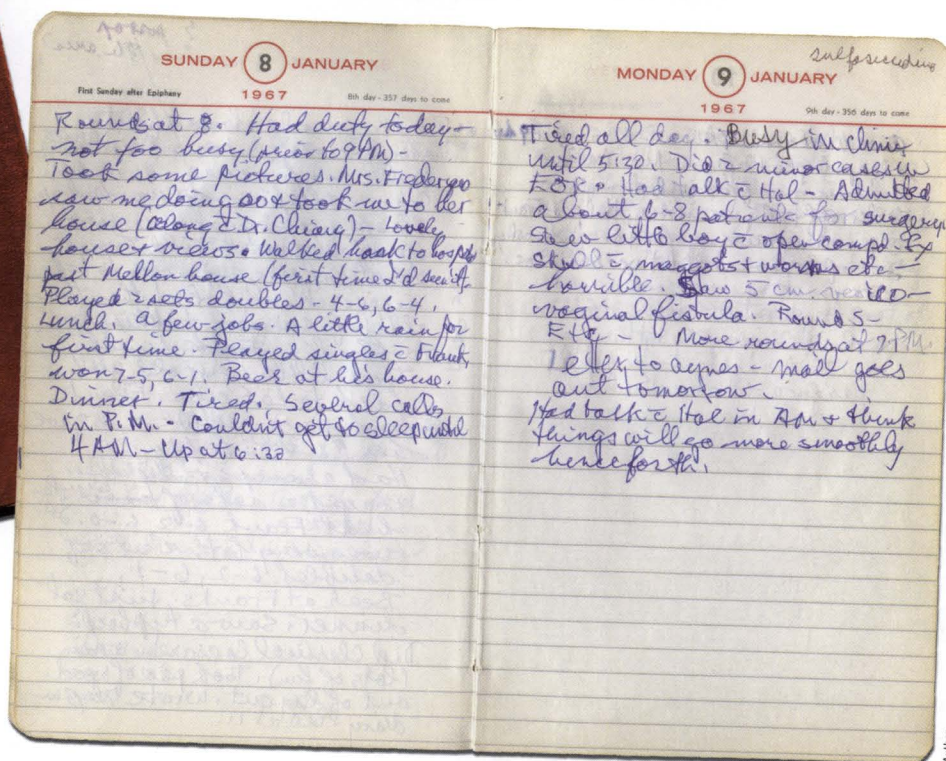 SUNDAY 8 JANUARY
First Sunday after Epiphany
1967
8th day - 357 days to come
Rounds at 8. Had duty today -
not too busy (prior to 9 AM) -
Took some pictures. Mrs.
saw me doing so & took me to her
house (along c̄ Dr. Chiang) - Lovely
house & views. Walked back to hosp
past Mellon house (first time I'd seen it).
Played 2 sets doubles - 4-6, 6-4.
Lunch. A few jobs. A little rain for
first time. Played singles c̄ Frank,
won 7-5, 6-1. Beer at his house.
Dinner. Tired. Several calls
in P.M. - Couldn't get to sleep until
4 AM - Up at 6:30
MONDAY 9 JANUARY
1967
9th day - 356 days to come
Tired all day. Busy in clinic
until 5:30. Did 2 minor cases in
EOR. Had talk c̄ Hal - Admitted
about 6-8 patients for surgery.
Saw little boy c̄ open compd. Fx
skull c̄ maggots & worms etc -
horrible. Saw 5 cm
vaginal fistula. Rounds -
Etc - More rounds at 7 PM.
Letter to - mail goes
out tomorrow.
Had talk c̄ Hal in AM & think
things will go more smoothly
henceforth.